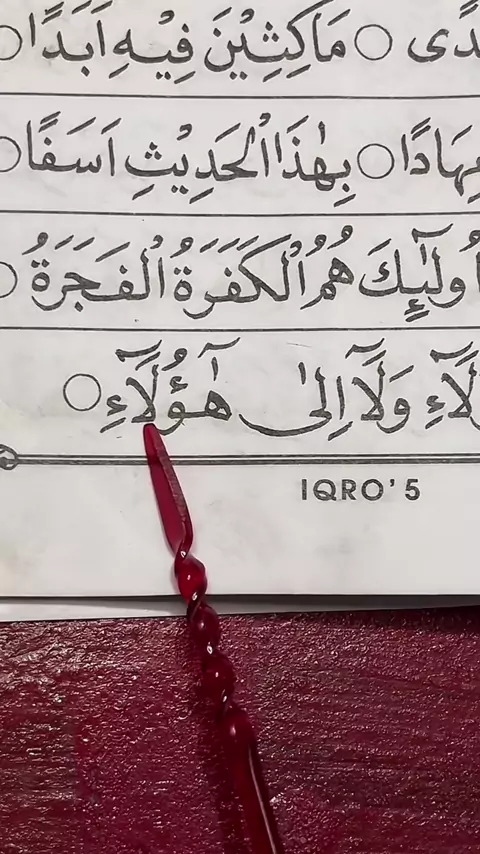 دًى ○ مَاكِثِيْنَ فِيْهِ اَبَدًا ○
هَادًا ○ بِهٰذَا الْحَدِيْثِ اَسَفًا ○
اُولٰٓئِكَ هُمُ الْكَفَرَةُ الْفَجَرَةُ ○
لَآءِ وَلَآ اِلٰى هٰٓؤُلَآءِ ○
IQRO' 5